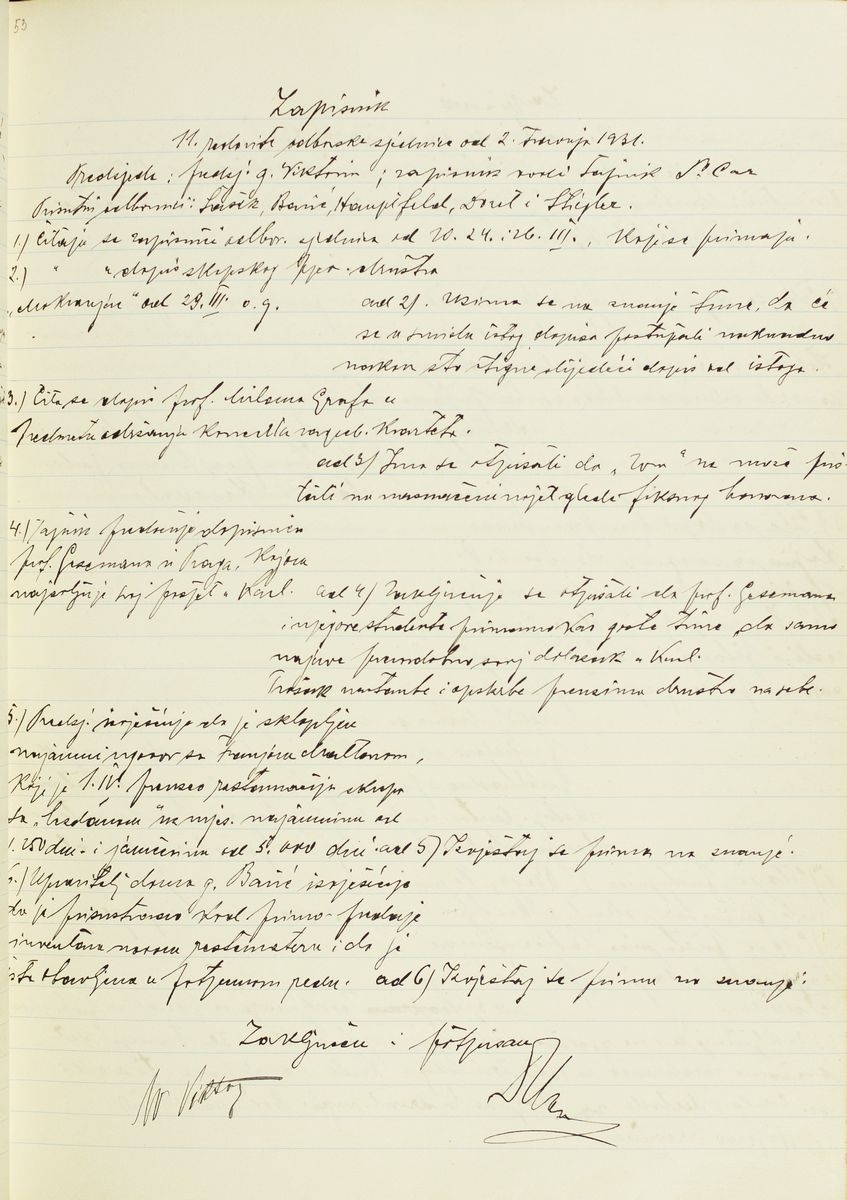 53
Zapisnik
11. redovite odborske sjednice od 2. travnja 1931.
Predsjeda: predsj. g. Viktorin; zapisnik vodi tajnik Dr Car
Prisutni odbornici: Lasek, Barić, Hauptfeld, Doret i Stiegler.
1.) Čitaju se zapisnici odbor. sjednica od 20. 24. i 26. III., koji se primaju.
2.) " " dopis skopskog Pjev. društva
„Mokranjac" od 29. III. o. g. ad 2). Uzima se na znanje time, da će
se u smislu istog dopisa postupati naknadno
nakon što stigne slijedeći dopis od istoga.
3.) Čita se dopis prof. Milana Grafa u
predmetu održanja koncerta zagreb. kvarteta.
ad 3) Ima se otpisati da „Zora" ne može pris-
tati na naznačeni uvjet glede fiksnog honorara.
4.) Tajnik predočuje dopisnicu
prof. Gesemanna iz Praga, kojom
najavljuje svoj posjet u Karl. ad 4) Zaključuje se otpisati da prof. Gesemanna
i njegove studente primamo kao goste time da samo
najave pravodobno svoj dolazak u Karl.
Trošak nastambe i opskrbe preuzima društvo na sebe.
5.) Predsj. izvješćuje da je sklopljen
najamni ugovor sa Franjom
koji je 1. IV. preuzeo restauraciju skupa
sa na mjes. najamninu od
1.250 din. i jamčevinu od 5.000 din. ad 5) Izvještaj se prima na znanje.
6.) Upravitelj doma g. Barić izvješćuje
da je prisustvovao kod primo-predaje
inventara novom restauateru i da je
ista obavljena u potpunom redu. ad 6) Izvještaj se prima na znanje.
Zaključeno i potpisano